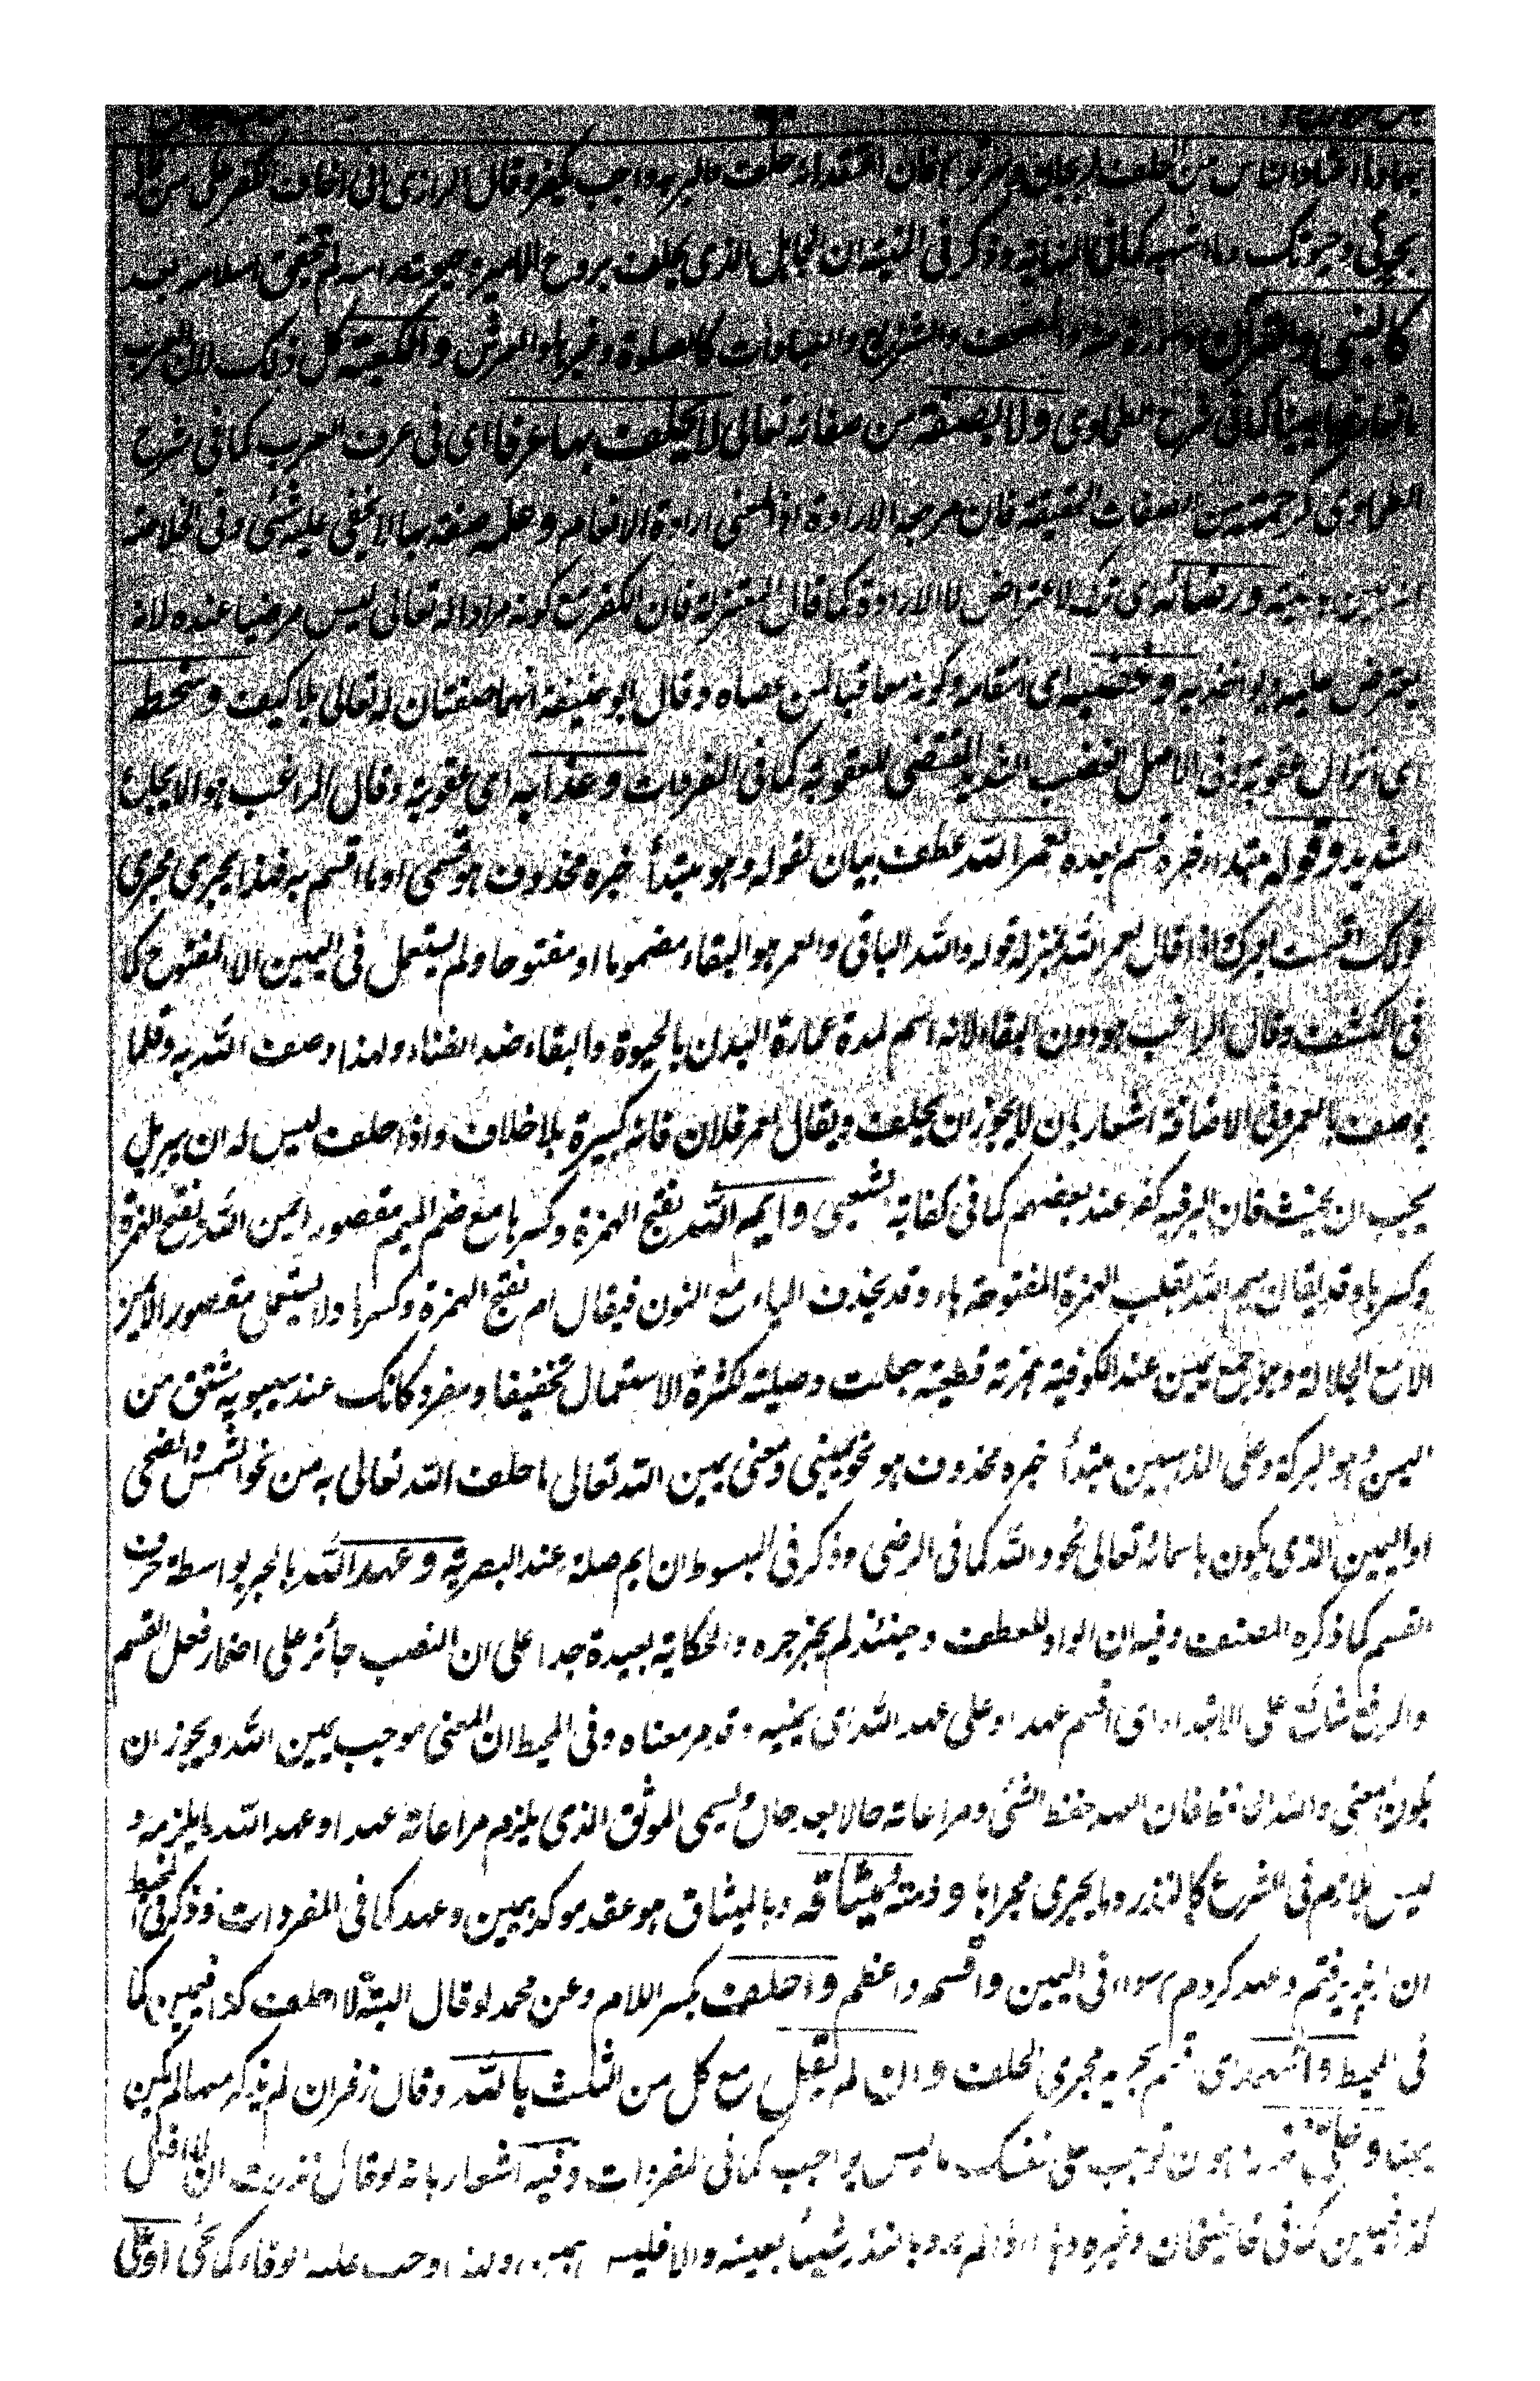 بها وما اعتاد الناس من الحلف بجان وسر تو فان اعتقد انه حلف والبر به واجب يكفر وقال الرازي اني اخاف الكفر على من قال
بحيوتي وحيوتك وما اشبهه كما في النهاية وذكر في المنية ان الجاهل الذي يحلف بروح الامير وحيوته لم يتحقق اسلامه بعد
كالنبي والقرآن والمصحف والشرائع والعبادات كالصلوة وغيرها والعرش والكعبة كل ذلك لان العرب
ما يمينا كما في شرح الطحاوي ولا بصفة من صفاته تعالى لا يحلف بها عرفا اى في عرف العرب كما في شرح
الطحاوي كرحمته من الصفات الحقيقية فان مرجعه الارادة اذ المعنى ارادة الانعام وعلمه صفة بها لا يخفى عليه شئ وفي الخلاصة
انه يمين بالنية ورضائه اى ترك الاعتراض لا الارادة كما قال المعتزلة فان الكفر مع كونه مرادا له تعالى ليس مرضيا عنده لانه
يعترض عليه ويؤاخذ به وغضبه اى انتقامه وكونه معاقبا لمن عصاه وقال ابو حنيفة انهما صفتان له تعالى بلا كيف وسخطه
اى انزال عقوبة وفي الاصل الغضب الشديد المقتضي للعقوبة كما في المفردات وعذابه اى عقوبة وقال الراغب هو الايجاع
الشديد وقوله مبتدأ وخبره قسم بعده لعمر الله عطف بيان لقوله وهو مبتدأ خبره محذوف هو قسمي او ما اقسم به فهذا يجري مجرى
قولك اقسمت بعمرك اذا قال لعمر الله بمنزلة قوله والله الباقي والعمر هو البقاء مضموما او مفتوحا ولم يستعمل في اليمين الا المفتوح كما
في الكشف وقال الراغب هو دون البقاء لانه اسم لمدة عمارة البدن بالحيوة والبقاء ضد الفناء ولهذا وصف الله به وقلما
يوصف بالعمر وفي الاضافة اشعار بان لا يجوز ان يحلف ويقال لعمر فلان فانه كبيرة بلا خلاف واذا حلف ليس له ان يبر بل
يجب ان يحنث فان البر فيه كفر عند بعضهم كما في كفاية الشعبي وايم الله بفتح الهمزة وكسرها مع ضم الميم مقصور ايمن الله بفتح الهمزة
وكسرها وقد يقال هيم الله بقلب الهمزة المفتوحة هاء وقد يحذف الياء مع النون فيقال ام بفتح الهمزة وكسرها ولا يستعمل مقصور الايمن
الا مع الجلالة وهو جمع يمين عند الكوفية همزته قطعية جعلت وصلية لكثرة الاستعمال تخفيفا ومفرد كآنك عند سيبويه مشتق من
اليمن وهو البركة وعلى المذهبين مبتدأ خبره محذوف هو نحو يميني ومعنى يمين الله تعالى ما حلف الله تعالى به من نحو الشمس والضحى
او اليمين الذي يكون باسمائه تعالى نحو والله كما في الرضى وذكر في المبسوط ان ايم صلة عند البصرية وعهد الله بالجر بواسطة حرف
القسم كما ذكره المصنف وفيه ان الواو للعطف وحينئذ لم يجز جره والحكاية بعيدة جدا على ان النصب جائز على اضمار فعل القسم
والرفع شائع على الابتداء اى اقسم عهد او على عهد الله اى يمينه وقد مر معناه وفي المحيط ان المعنى موجب يمين الله ويجوز ان
يكون المعنى والله الحافظ فان العهد حفظ الشئ ومراعاته حالا بعد حال وسمي الموثق الذي يلزم مراعاته عهدا وعهد الله ما يلزمه و
ليس بلازم في الشرع كالنذر وما يجري مجراها وذمته وميثاقه وبالميثاق هو عقد مؤكد بيمين وعهد كما في المفردات وذكر في المحيط
ان پذيرفتم وعهد كردم سواء في اليمين واقسم واعظم واحلف بكسر اللام وعن محمد لو قال البتة لا احلف كذا فيمين كما
في المحيط واشهد اى قسم يجر به مجرى الحلف وان لم يقل مع كل من الثلث بالله وقال زفر ان لم يذكر معها لم يكن
يمينا وعلي نذر هو ان توجب على نفسك ما ليس بواجب كما في المفردات وفيه اشعار بانه لو قال نذرت ان لا افعل
كذا فيمين كذا في قاضيخان وغيره وهذا اذا لم يرد بالنذر شيئا بعينه والا فليس بيمين ولهذا وجب عليه الوفاء كما يجئ او علي